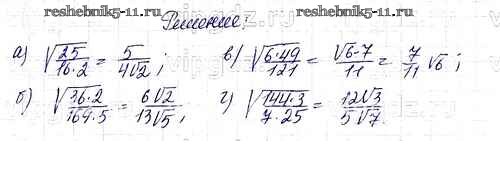 reshebnik5-11.ru reshebnik5-11.ru
Решение:
а) √(25/(16·2)) = 5/(4√2); в) √((6·49)/121) = (√6·7)/11 = 7/11 √6;
б) √((36·2)/(164·5)) = (6√2)/(13√5); г) √((144·3)/(7·25)) = (12√3)/(5√7).